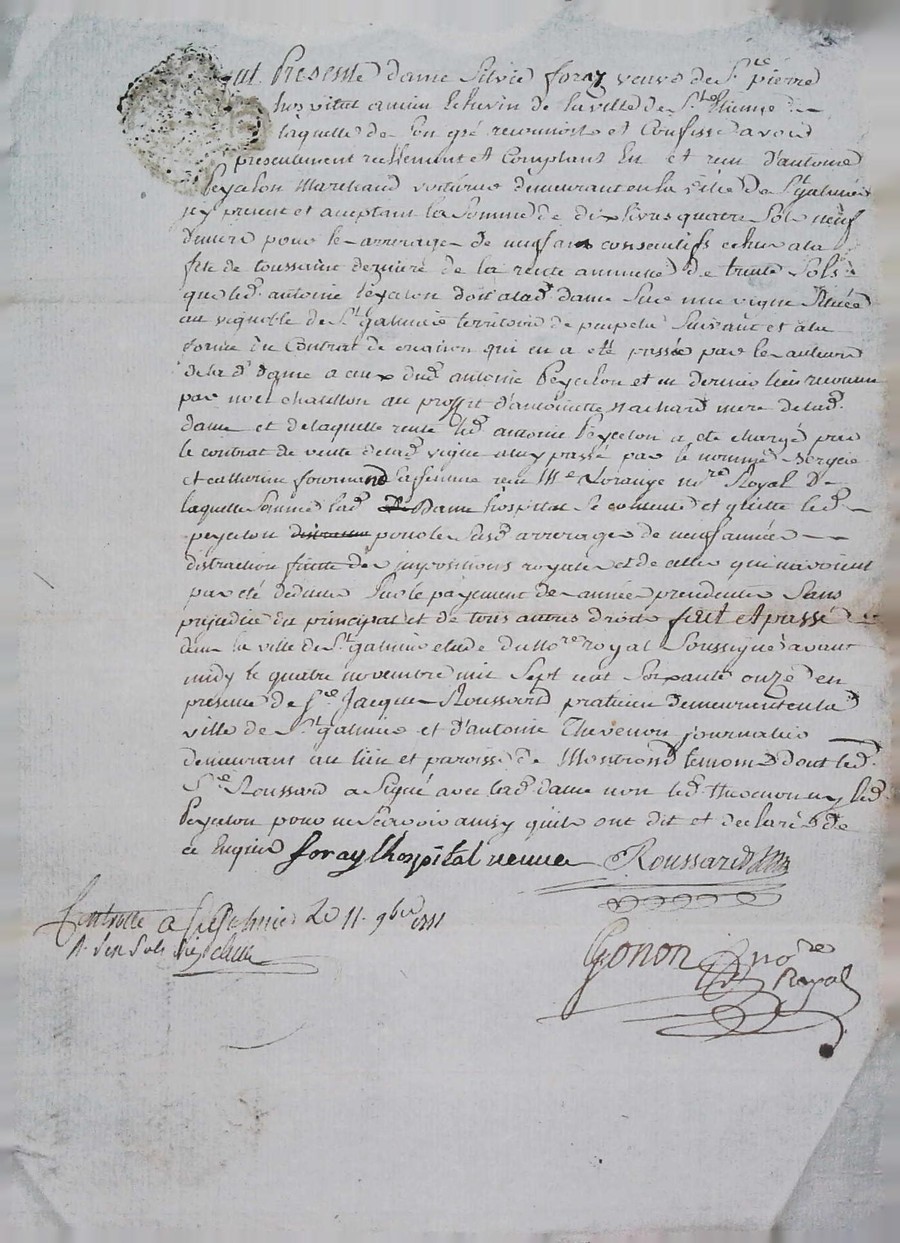 fut Presente dame Silvie foray veuve de Sr. pierre
hospital ancien Echevin de la ville de St. Etienne
laquelle de son gré reconnoist et Confesse avoir
presentement reellement et Comptant Eu et recu d'antoine
Peycelon Marchand voiturier demeurant en la ville de St galmier
icy present et aceptant la Somme de dix livres quatre Sols neuf
deniers pour le arrerages de neuf ans consecutifs echus a la
fete de toussaint derniere de la rente annuelle de trente Sols
que led. antoine Peycelon doit a lad. dame Sur une vigne Située
au vignoble de St galmier territoire de Suivant et a la
forme du Contrat de creation qui en a eté passée par les auteurs
de la de. dame a ceux dud. antoine Peycelon et en dernier lieu reconnu
par noel chatillon au proffit d'antoinette nachard mere de lad.
dame et de laquelle rente led. antoine Peycelon a eté chargé par
le contrat de vente de lad. vigne a luy passé par le nommé Bergeie
et catherine fournand Sa femme recu Me. Lorange nore. Royal de
laquelle Somme lad. Dame hospital Se contente et quitte led.
peycelon pour les Susd. arrerages de neuf années
distraction faitte des impositions royales et de celles qui n'avoient
pas eté deduites Sur le payement des années precedentes Sans
prejudice du principal et de tous autres droits fait et passé
dans la ville de St galmier etude du nore. royal Soussigné avant
midy le quatre novembre mil Sept cent Soixante onze en
presence de Sre. Jacques Roussard praticien demeurent en la d
ville de St galmier et d'antoine Thevenon journalier
demeurant au lieu et paroisse de Montrond temoins dont led.
Sre. Roussard a Signé avec lad. dame non led. thevenon ny led.
Peycelon pour ne Scavoir ainsy qu'ils ont dit et declaré de
ce Enquis foray lhospital veuve Roussard
Controllé a St Galmier Le 11. 9bre 1771
R. Six Sols
Gonon nore
Royal